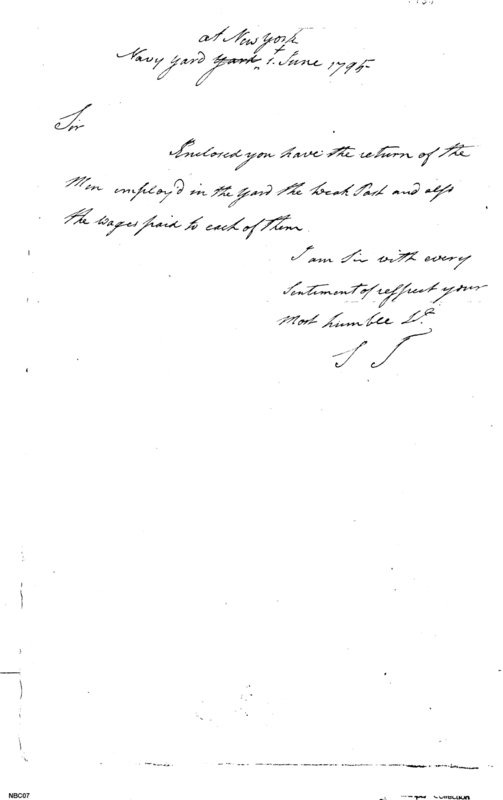 at New York
Navy yard yard 1t June 1795
Sir
Enclosed you have the return of the
Men employ'd in the yard the Week Past and also
the wages paid to each of them
I am Sir with every
Sentiment of respect your
Most humbee St
S J
NBC07